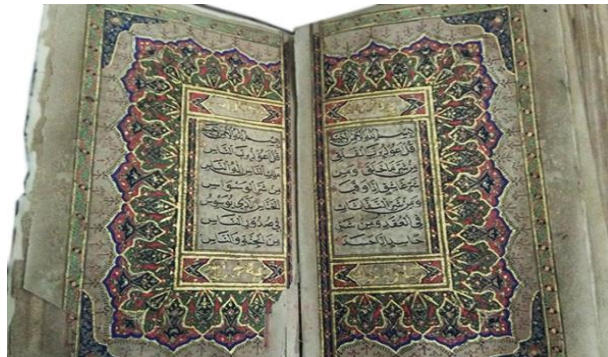 بسم الله الرحمن الرحيم
قل اعوذ برب الفلق
من شر ما خلق ومن
شر غاسق اذا وقب
ومن شر النفاثات
في العقد ومن شر
حاسد اذا حسد
بسم الله الرحمن الرحيم
قل اعوذ برب الناس
ملك الناس اله الناس
من شر الوسواس
الخناس الذي يوسوس
في صدور الناس
من الجنة والناس